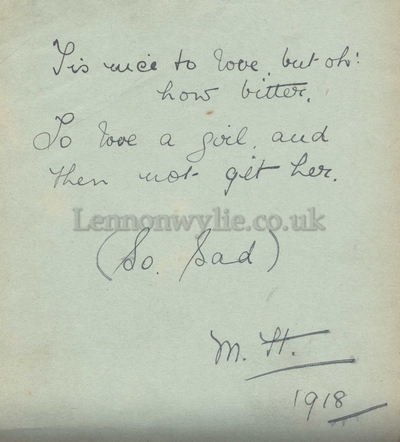 Tis nice to love, but oh!
how bitter.
To love a girl, and
then not get her.
Lennonwylie.co.uk
(So Sad)
M. H.
1918